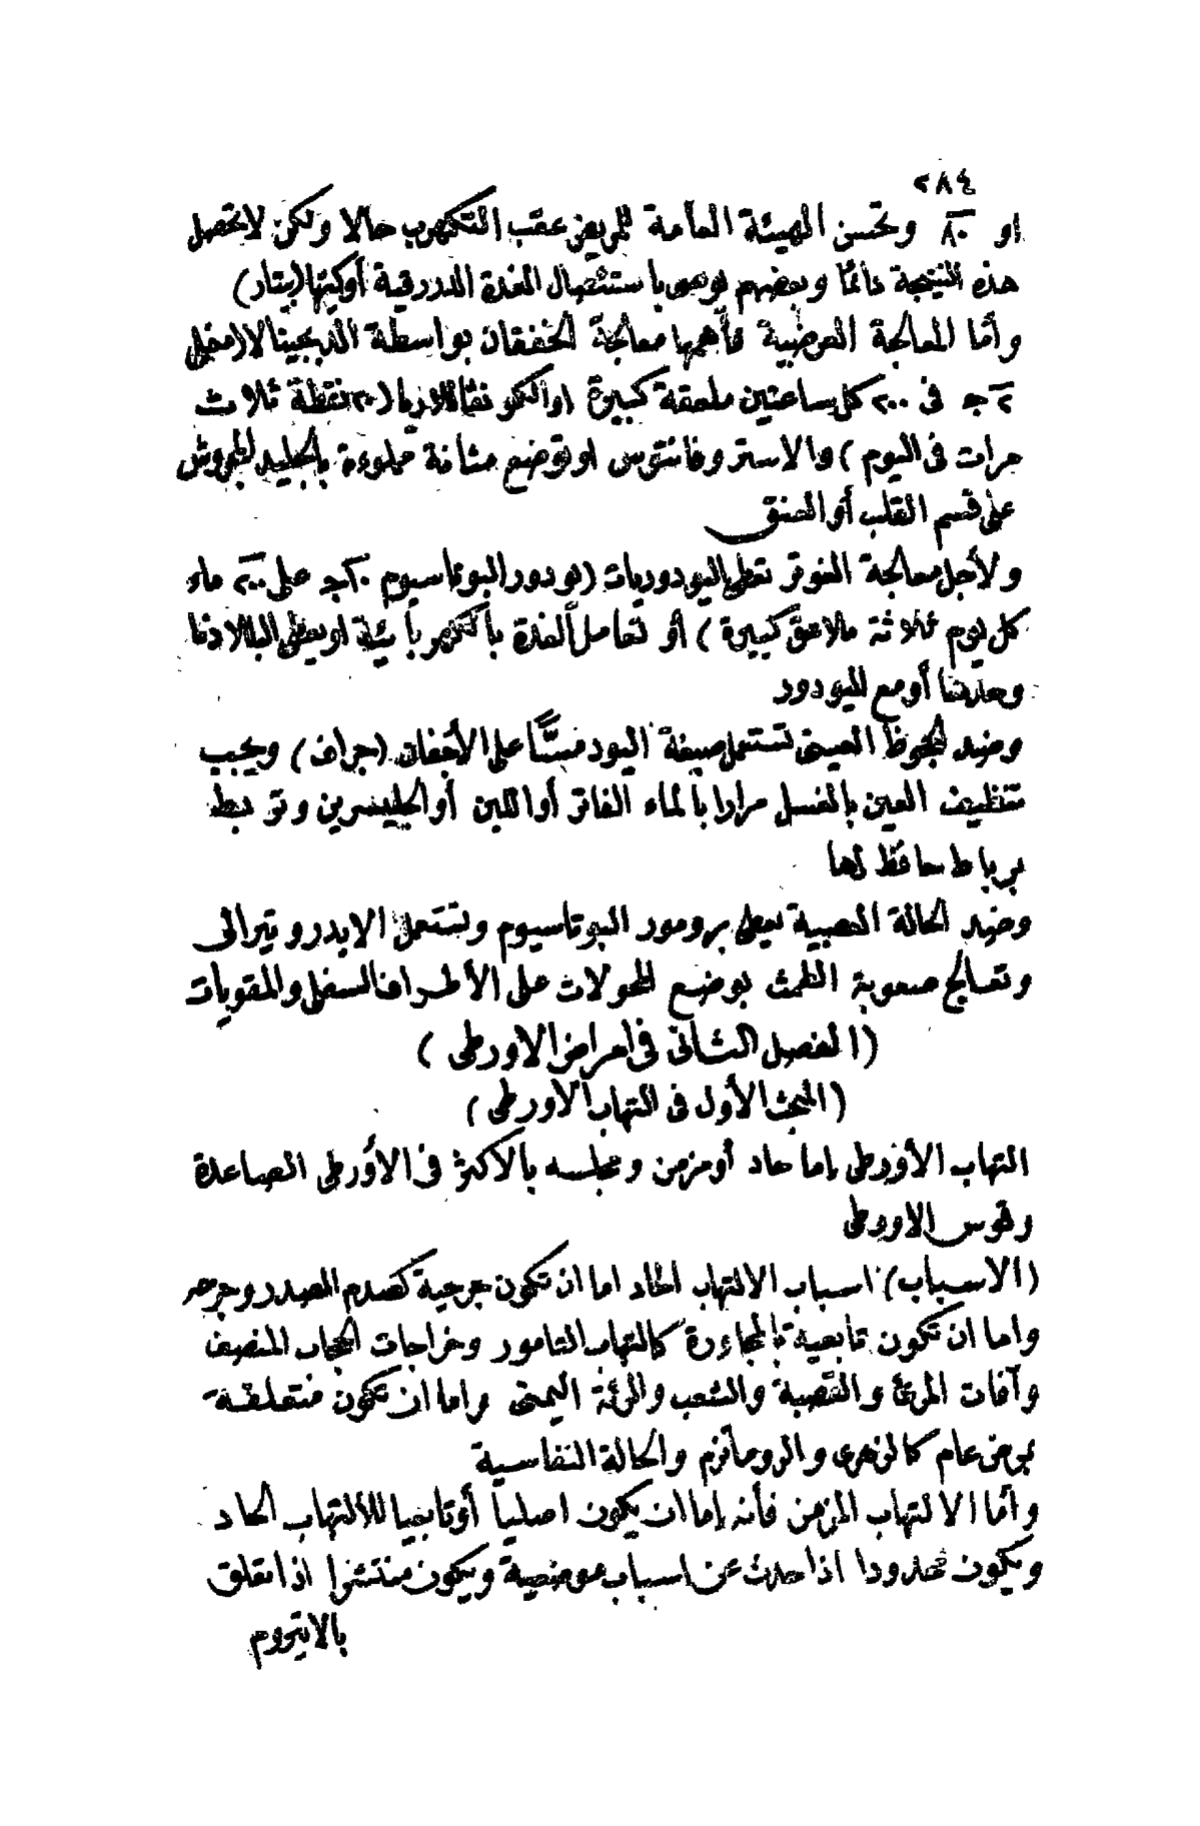 ٢٨٤
او ٨٠ وتحسن الهيئة العامة للمريض عقب التكهرب حالا ولكن لا تحصل
هذه النتيجة دائما وبعضهم يوصى باستئصال الغدة الدرقية أو كيها (بتار)
وأما المعالجة العرضية فأهمها معالجة الخفقان بواسطة الديجيتالا (مغلى
٢ جـ فى ٢٠٠ كل ساعتين ملعقة كبيرة او الكونفالاريا (٢٠ نقطة ثلاث
مرات فى اليوم) والاستروفانتوس او توضع مثانة مملوءة بالجليد المجروش
على قسم القلب أو العنق
ولأجل معالجة الغوتر تعطى اليودوريات (يودور البوتاسيوم ٢٠ جـ على ٢٠٠ ماء
كل يوم ثلاثة ملاعق كبيرة) أو تعامل الغدة بالكهربائية او يعطى البلادنا
وحدها أو مع اليودور
وضد جحوظ العينين تستعمل صبغة اليود مسًّا على الأجفان (جراف) ويجب
تنظيف العين بالغسل مرارا بالماء الفاتر أو اللبن أو الجليسرين وتربط
برباط حافظ لها
وضد الحالة العصبية يعطى برومور البوتاسيوم وتستعمل الايدروتيرابى
وتعالج صعوبة الطمث بوضع المحولات على الأطراف السفلى والمقويات
(الفصل الثانى فى امراض الاورطى)
(المبحث الأول فى التهاب الأورطى)
التهاب الأورطى إما حاد أو مزمن ومجلسه بالأكثر فى الأورطى الصاعدة
وقوس الاورطى
(الاسباب) اسباب الالتهاب الحاد اما ان تكون جرحية كصدم الصدر وجرحه
واما ان تكون تابعية بالمجاورة كالتهاب التامور وخراجات الحجاب المنصف
وآفات المرئ والقصبة والشعب والرئة اليمنى واما ان تكون متعلقة
بمرض عام كالزهرى والروماتزم والحالة النفاسية
وأما الالتهاب المزمن فأنه إما ان يكون اصليا أو تابعيا للألتهاب الحاد
ويكون محدودا اذا حدث عن اسباب موضعية ويكون منتشرا اذا تعلق
بالاتيروم